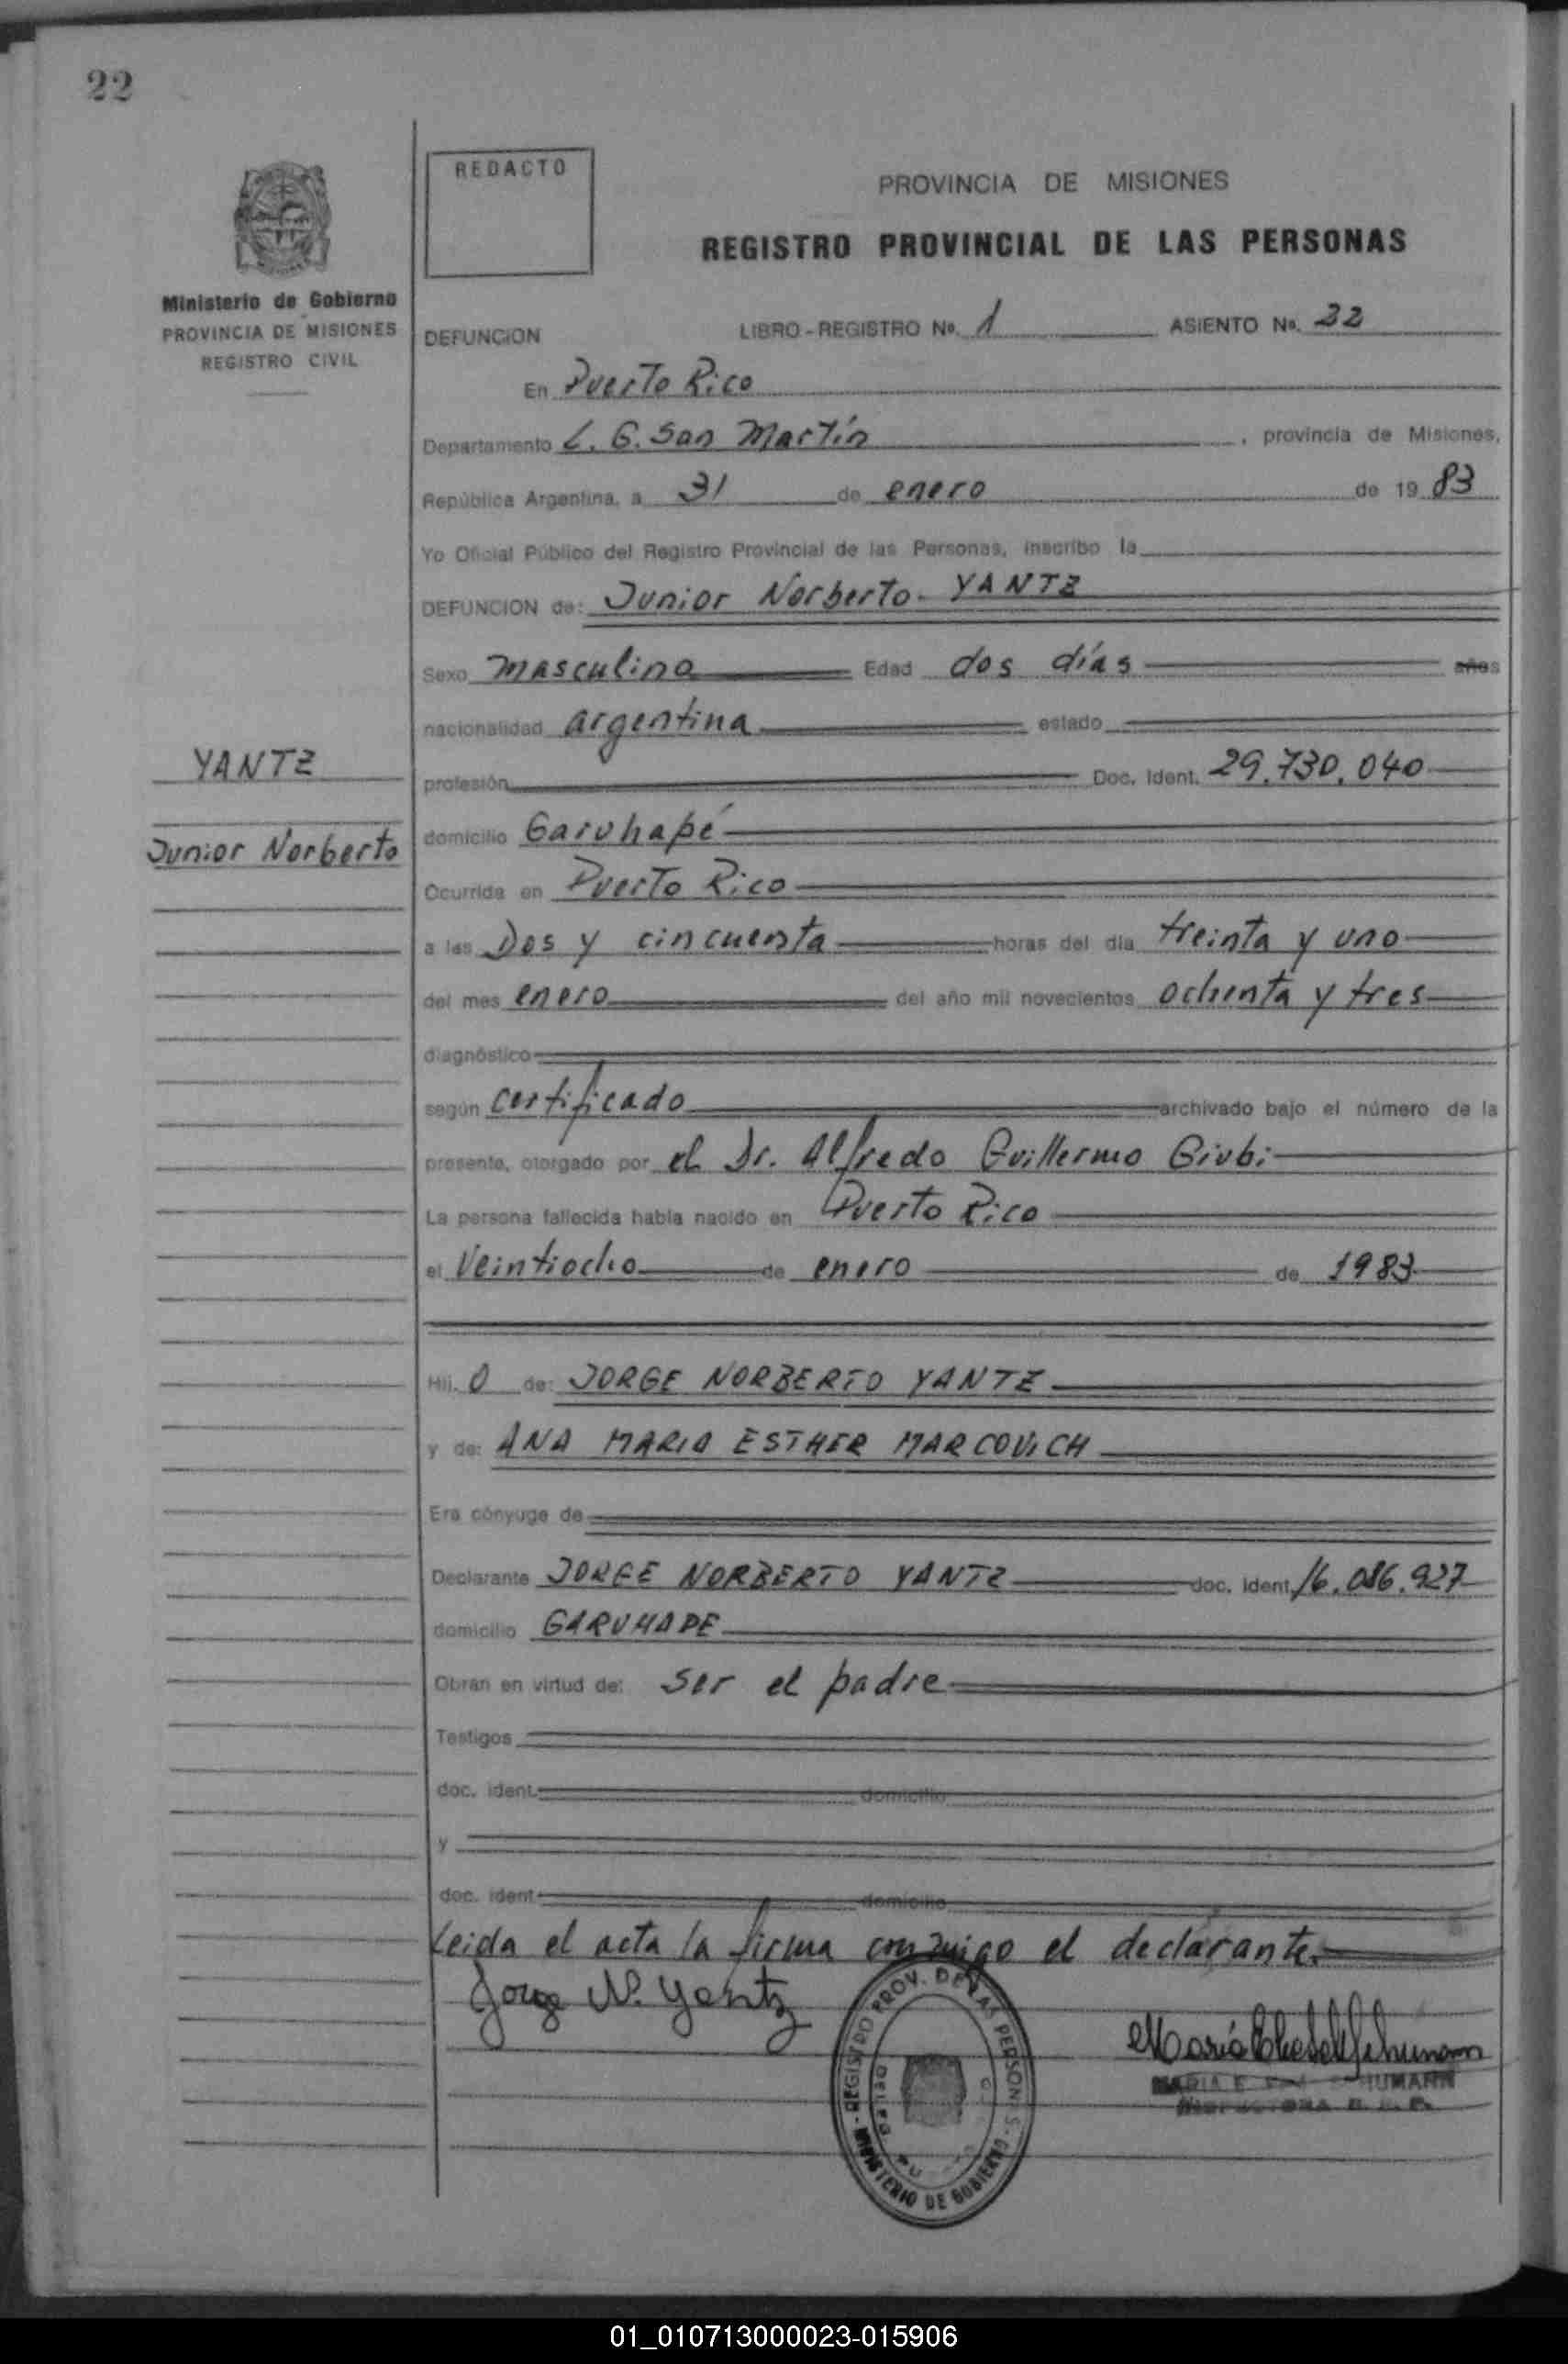 22
REDACTO
PROVINCIA DE MISIONES
REGISTRO PROVINCIAL DE LAS PERSONAS
Ministerio de Gobierno
PROVINCIA DE MISIONES
REGISTRO CIVIL
DEFUNCION LIBRO-REGISTRO No. 1 ASIENTO No. 22
En Puerto Rico
Departamento L. G. San Martín, provincia de Misiones,
República Argentina, a 31 de enero de 1983
Yo Oficial Público del Registro Provincial de las Personas, inscribo la
DEFUNCION de: Junior Norberto- YANTZ
Sexo masculino Edad dos días años
nacionalidad argentina estado
YANTZ
profesión Doc. Ident. 29.730.040
Junior Norberto
domicilio Garuhapé
Ocurrida en Puerto Rico
a las Dos y cincuenta horas del día treinta y uno
del mes enero del año mil novecientos ochenta y tres
diagnóstico
según certificado archivado bajo el número de la
presente, otorgado por el Dr. Alfredo Guillermo Giubi
La persona fallecida había nacido en Puerto Rico
el Veintiocho de enero de 1983
Hij. O de: JORGE NORBERTO YANTZ
y de: ANA MARIA ESTHER MARCOVICH
Era cónyuge de
Declarante JORGE NORBERTO YANTZ doc. Ident. 16.086.927
domicilio GARUHAPE
Obran en virtud de: ser el padre
Testigos
doc. ident. domicilio
y
doc. ident. domicilio
Leida el acta la firma conmigo el declarante.
Jorge N. Yantz
REGISTRO PROV. DE LAS PERSONAS
MINISTERIO DE GOBIERNO
MARIA E. SCHUMANN
01_010713000023-015906